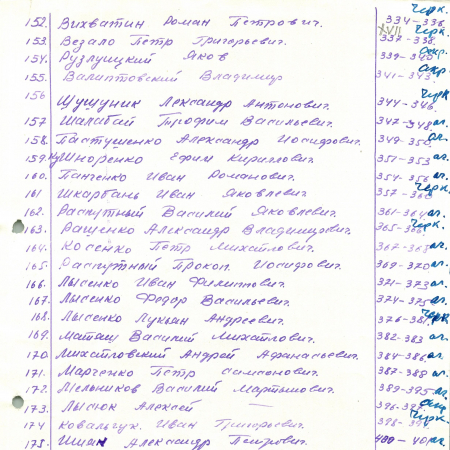 Черк.
152. Вихватин Роман Петрович. 334-336
153. Везало Петр Григорьевич. XVII 337-338 Черк.
154. Рузлуцкий Яков 339-340 окр.
155. Валиптовский Владимир 341-343 окр.
156 Шушуник Александр Антонович. 344-346 Черк
157 Шалабай Трофим Васильевич. 347-348 аг.
158. Пастушенко Александр Иосифович. 349-350 аг.
159. Шноренко Ефим Кириллович. 351-353 аг.
160. Панченко Иван Романович. 354-356 аг.
161 Шкарбань Иван Яковлевич. 357-360 Черк.
162. Распутный Василий Яковлевич. 361-364 аг.
163. Ращенко Александр Владимирович. 365-366 Черк.
164. Косенко Петр Михайлович. 367-368 аг.
165. Распутный Прокоп. Иосифович. 369-370 аг.
166. Лысенко Иван Филиппович. 371-373 аг.
167. Лысенко Федор Васильевич. 374-375 аг.
168. Лысенко Лукьян Андреевич. 376-381 Черк
169. Маташ Василий Михайлович. 382-383 аг.
170. Михайловский Андрей Афанасьевич. 384-386 аг.
171. Марченко Петр Самсонович. 387-388 аг.
172. Мельников Василий Мартынович. 389-395 аг.
173. Лысюк Алексей — 396-397 окр.
174 Ковальчук Иван Григорьевич. 398-399 Черк.
175. Шиян Александр Петрович. 400-401 аг.